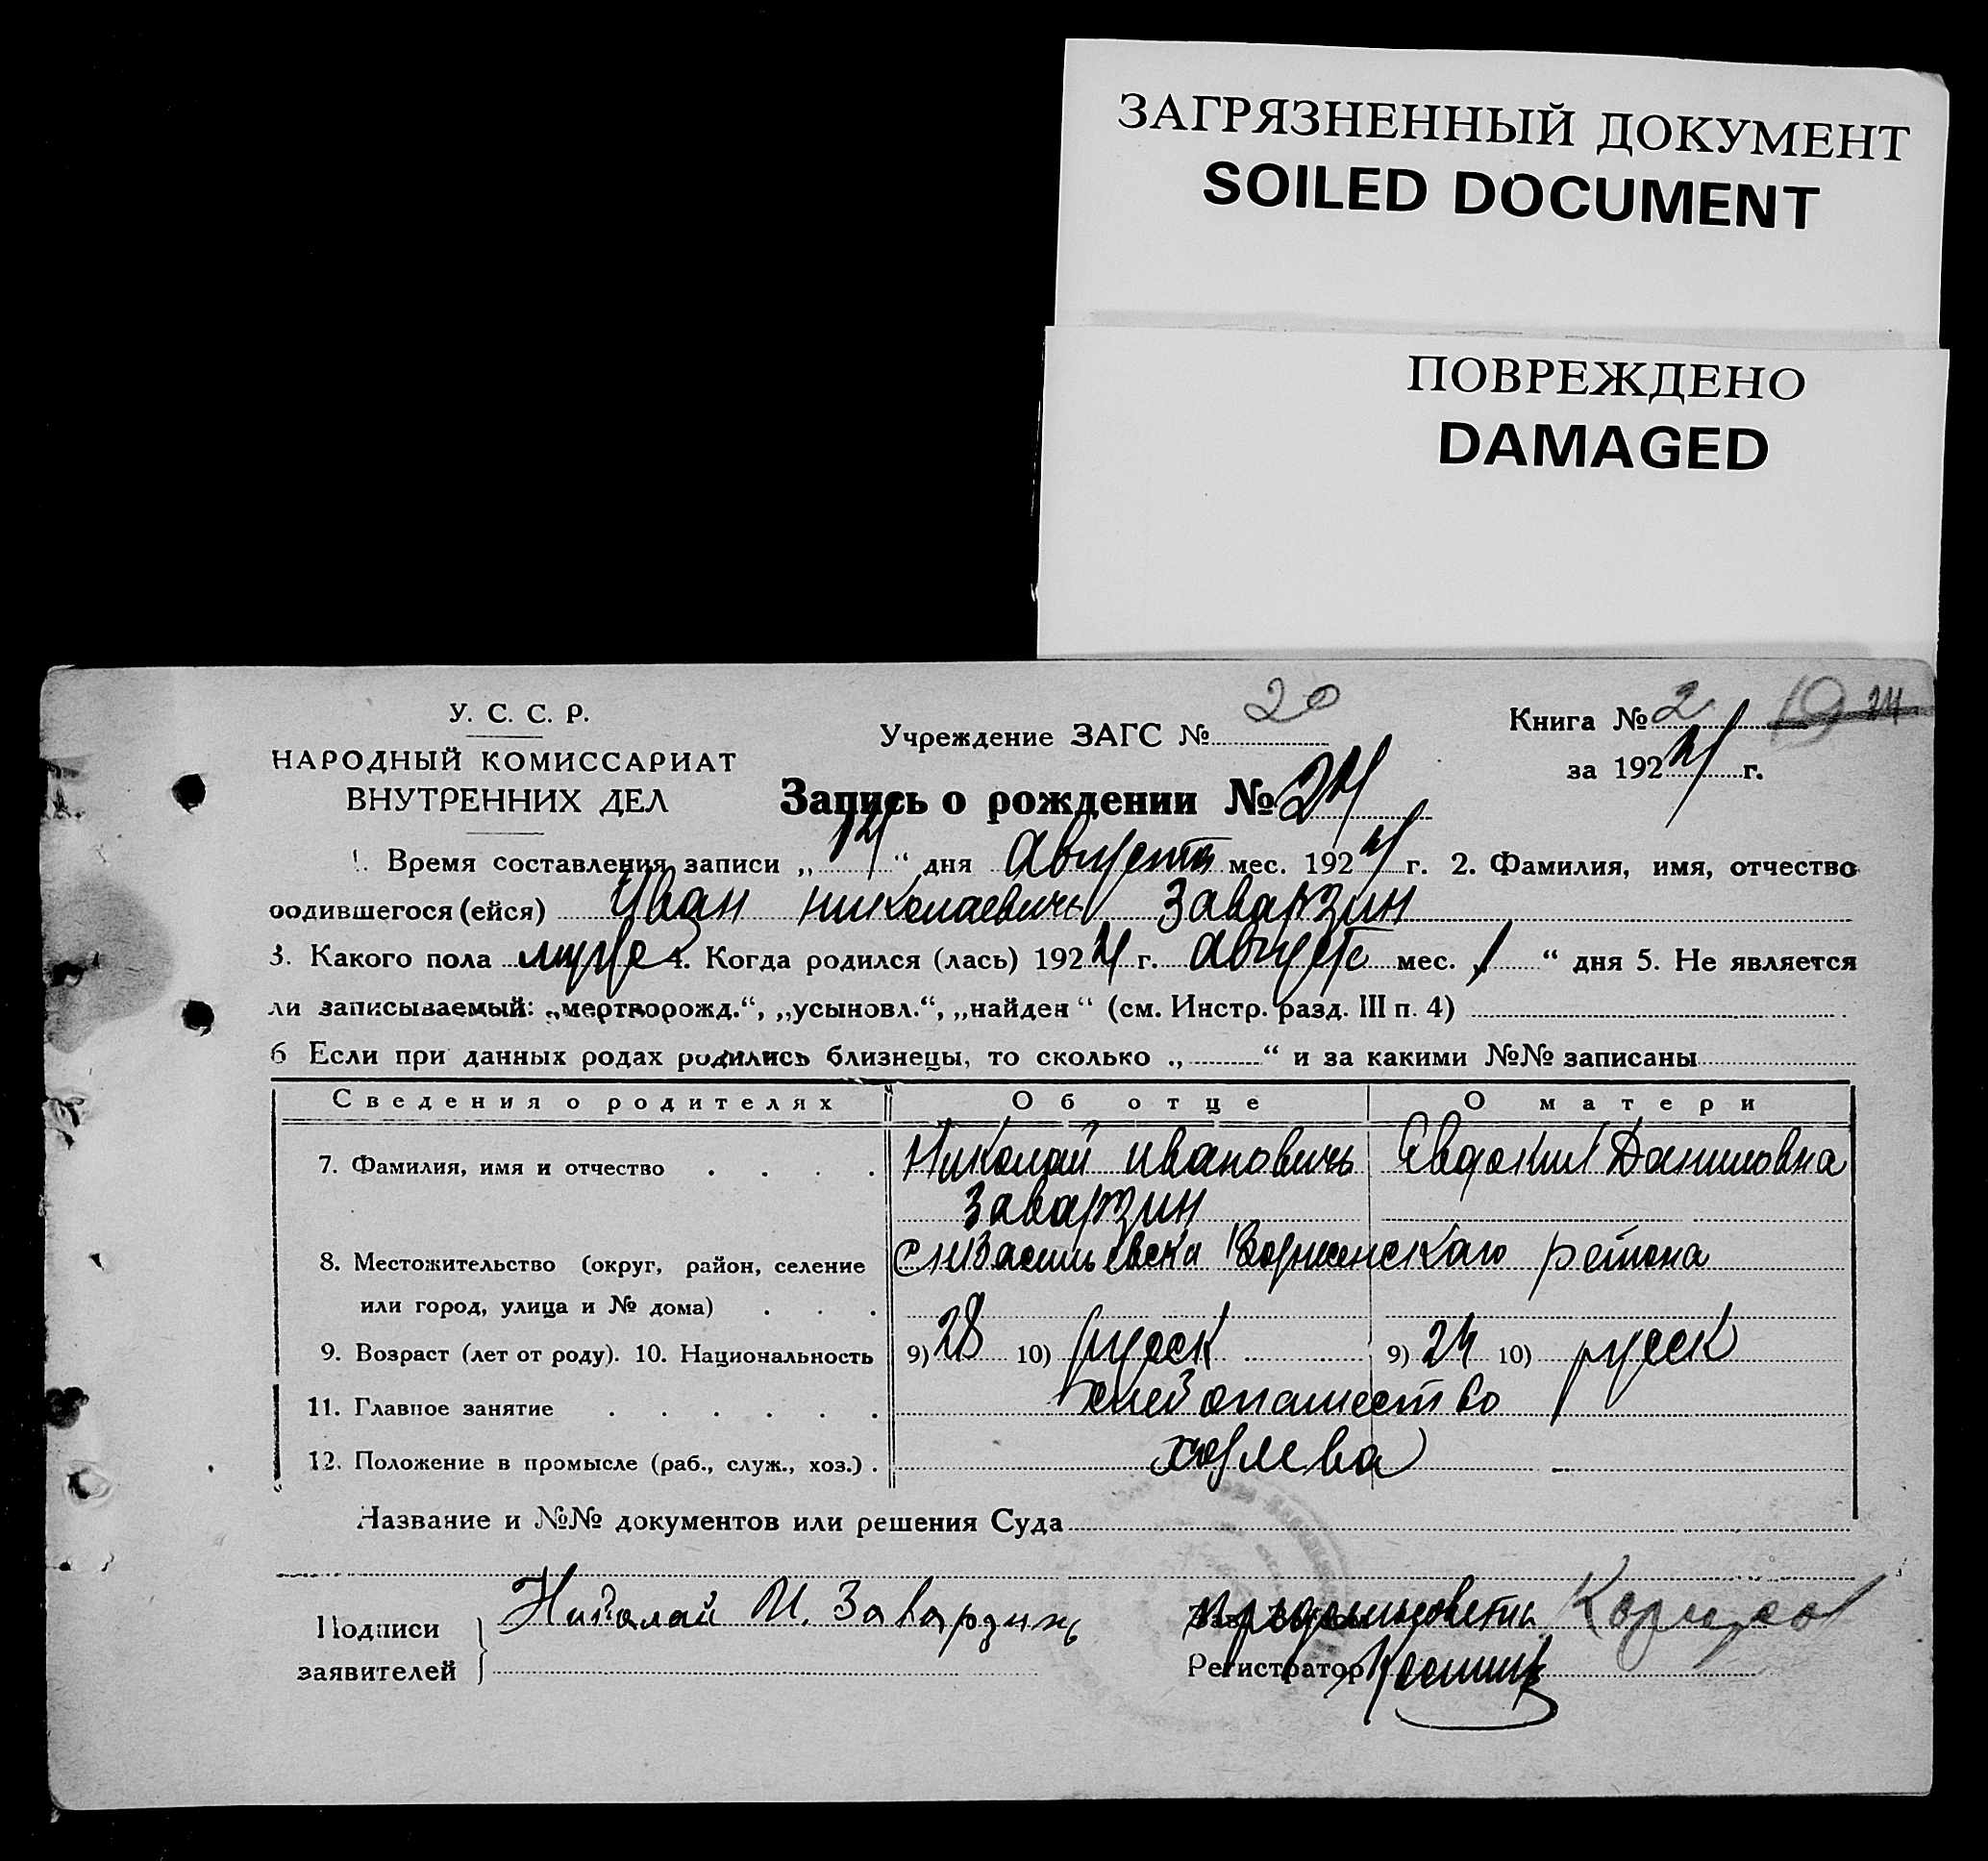 ЗАГРЯЗНЕННЫЙ ДОКУМЕНТ
SOILED DOCUMENT
ПОВРЕЖДЕНО
DAMAGED
У. С. С. Р.
НАРОДНЫЙ КОМИССАРИАТ
ВНУТРЕННИХ ДЕЛ
Учреждение ЗАГС № 20
Книга № 2
за 1924 г.
Запись о рождении № 24
1. Время составления записи „14“ дня Августа мес. 1924 г. 2. Фамилия, имя, отчество
родившегося (ейся) Иван николаевичь Заварзин
3. Какого пола муже 4. Когда родился (лась) 1924 г. Августе мес. 1 “ дня 5. Не является
ли записываемый: „мертворожд.“, „усыновл.“, „найден“ (см. Инстр. разд. III п. 4)
6 Если при данных родах родились близнецы, то сколько „ “ и за какими №№ записаны
Сведения о родителях Об отце О матери
7. Фамилия, имя и отчество Николай ивановичь Евдокия Даниловна
Заварзин
8. Местожительство (округ, район, селение района
или город, улица и № дома)
9. Возраст (лет от роду). 10. Национальность 9) 28 10) русск 9) 24 10) русск
11. Главное занятие хлебопашество
12. Положение в промысле (раб., служ., хоз.)
Название и №№ документов или решения Суда
Подписи
заявителей
Николай И. Заварзинъ
Регистратор